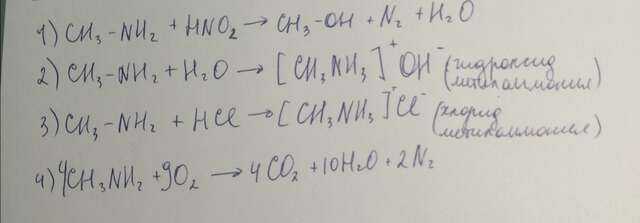 1) CH₃-NH₂ + HNO₂ → CH₃-OH + N₂ + H₂O
2) CH₃-NH₂ + H₂O → [CH₃NH₃]⁺OH⁻ (гидроксид метиламмония)
3) CH₃-NH₂ + HCl → [CH₃NH₃]⁺Cl⁻ (хлорид метиламмония)
4) 4CH₃NH₂ + 9O₂ → 4CO₂ + 10H₂O + 2N₂